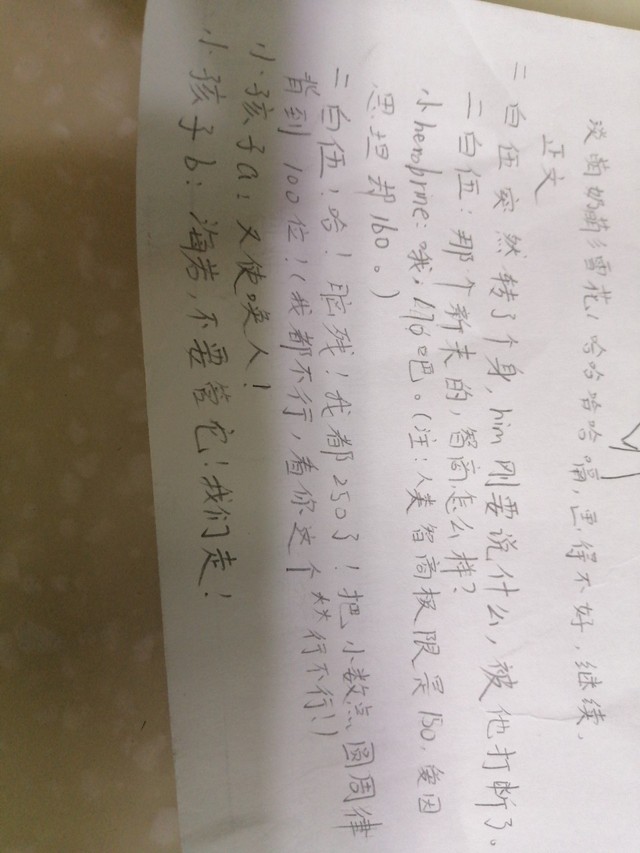 淡菊奶萌彡雪花、哈哈哈哈嗝,画得不好,继续,
正文
二白伍突然转了个身,him刚要说什么,被他打断了。
二白伍:那个新来的,智商怎么样?
小herobrine:哦,176吧。(注:人类智商极限是150,爱因
思坦却160。)
二白伍:哈!脑残!我都250了!把小数点圆周律
背到100位!(我都不行,看你这个**行不行!)
小孩子a:又使唤人!
小孩子b:海若,不要管它!我们走!